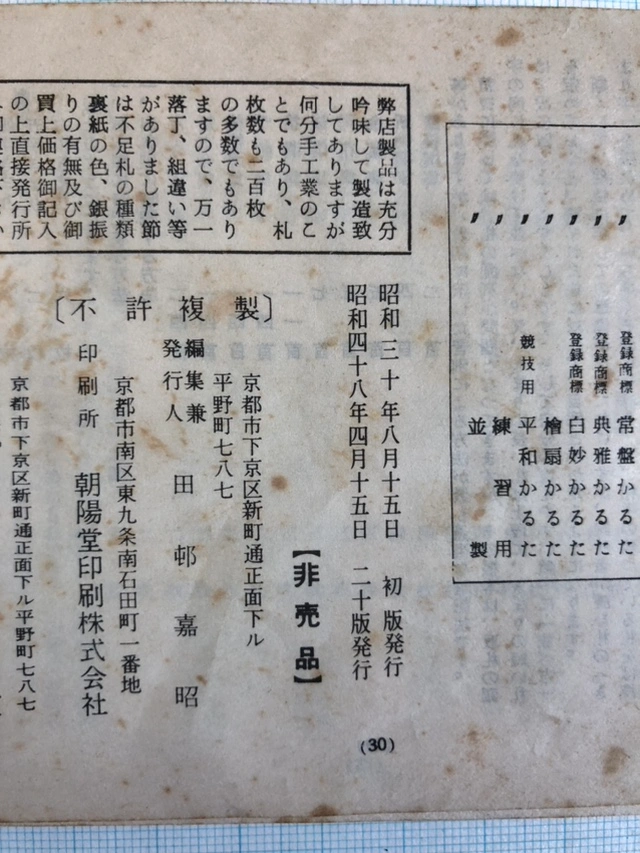 〃 登録商標 常盤かるた
〃 登録商標 典雅かるた
〃 登録商標 白妙かるた
〃 檜扇かるた
〃 競技用 平和かるた
〃 練習用
〃 並製
昭和三十年八月十五日 初版発行
昭和四十八年四月十五日 二十版発行
【非売品】
〔不許複製〕
京都市下京区新町通正面下ル
平野町七八七
編集兼
発行人 田邨嘉昭
京都市南区東九条南石田町一番地
印刷所 朝陽堂印刷株式会社
京都市下京区新町通正面下ル平野町七八七
弊店製品は充分
吟味して製造致
してありますが
何分手工業のこ
とでもあり、札
枚数も二百枚
の多数でもあり
ますので、万一
落丁、組違い等
がありました節
は不足札の種類
裏紙の色、銀振
りの有無及び御
買上価格御記入
の上直接発行所
(30)